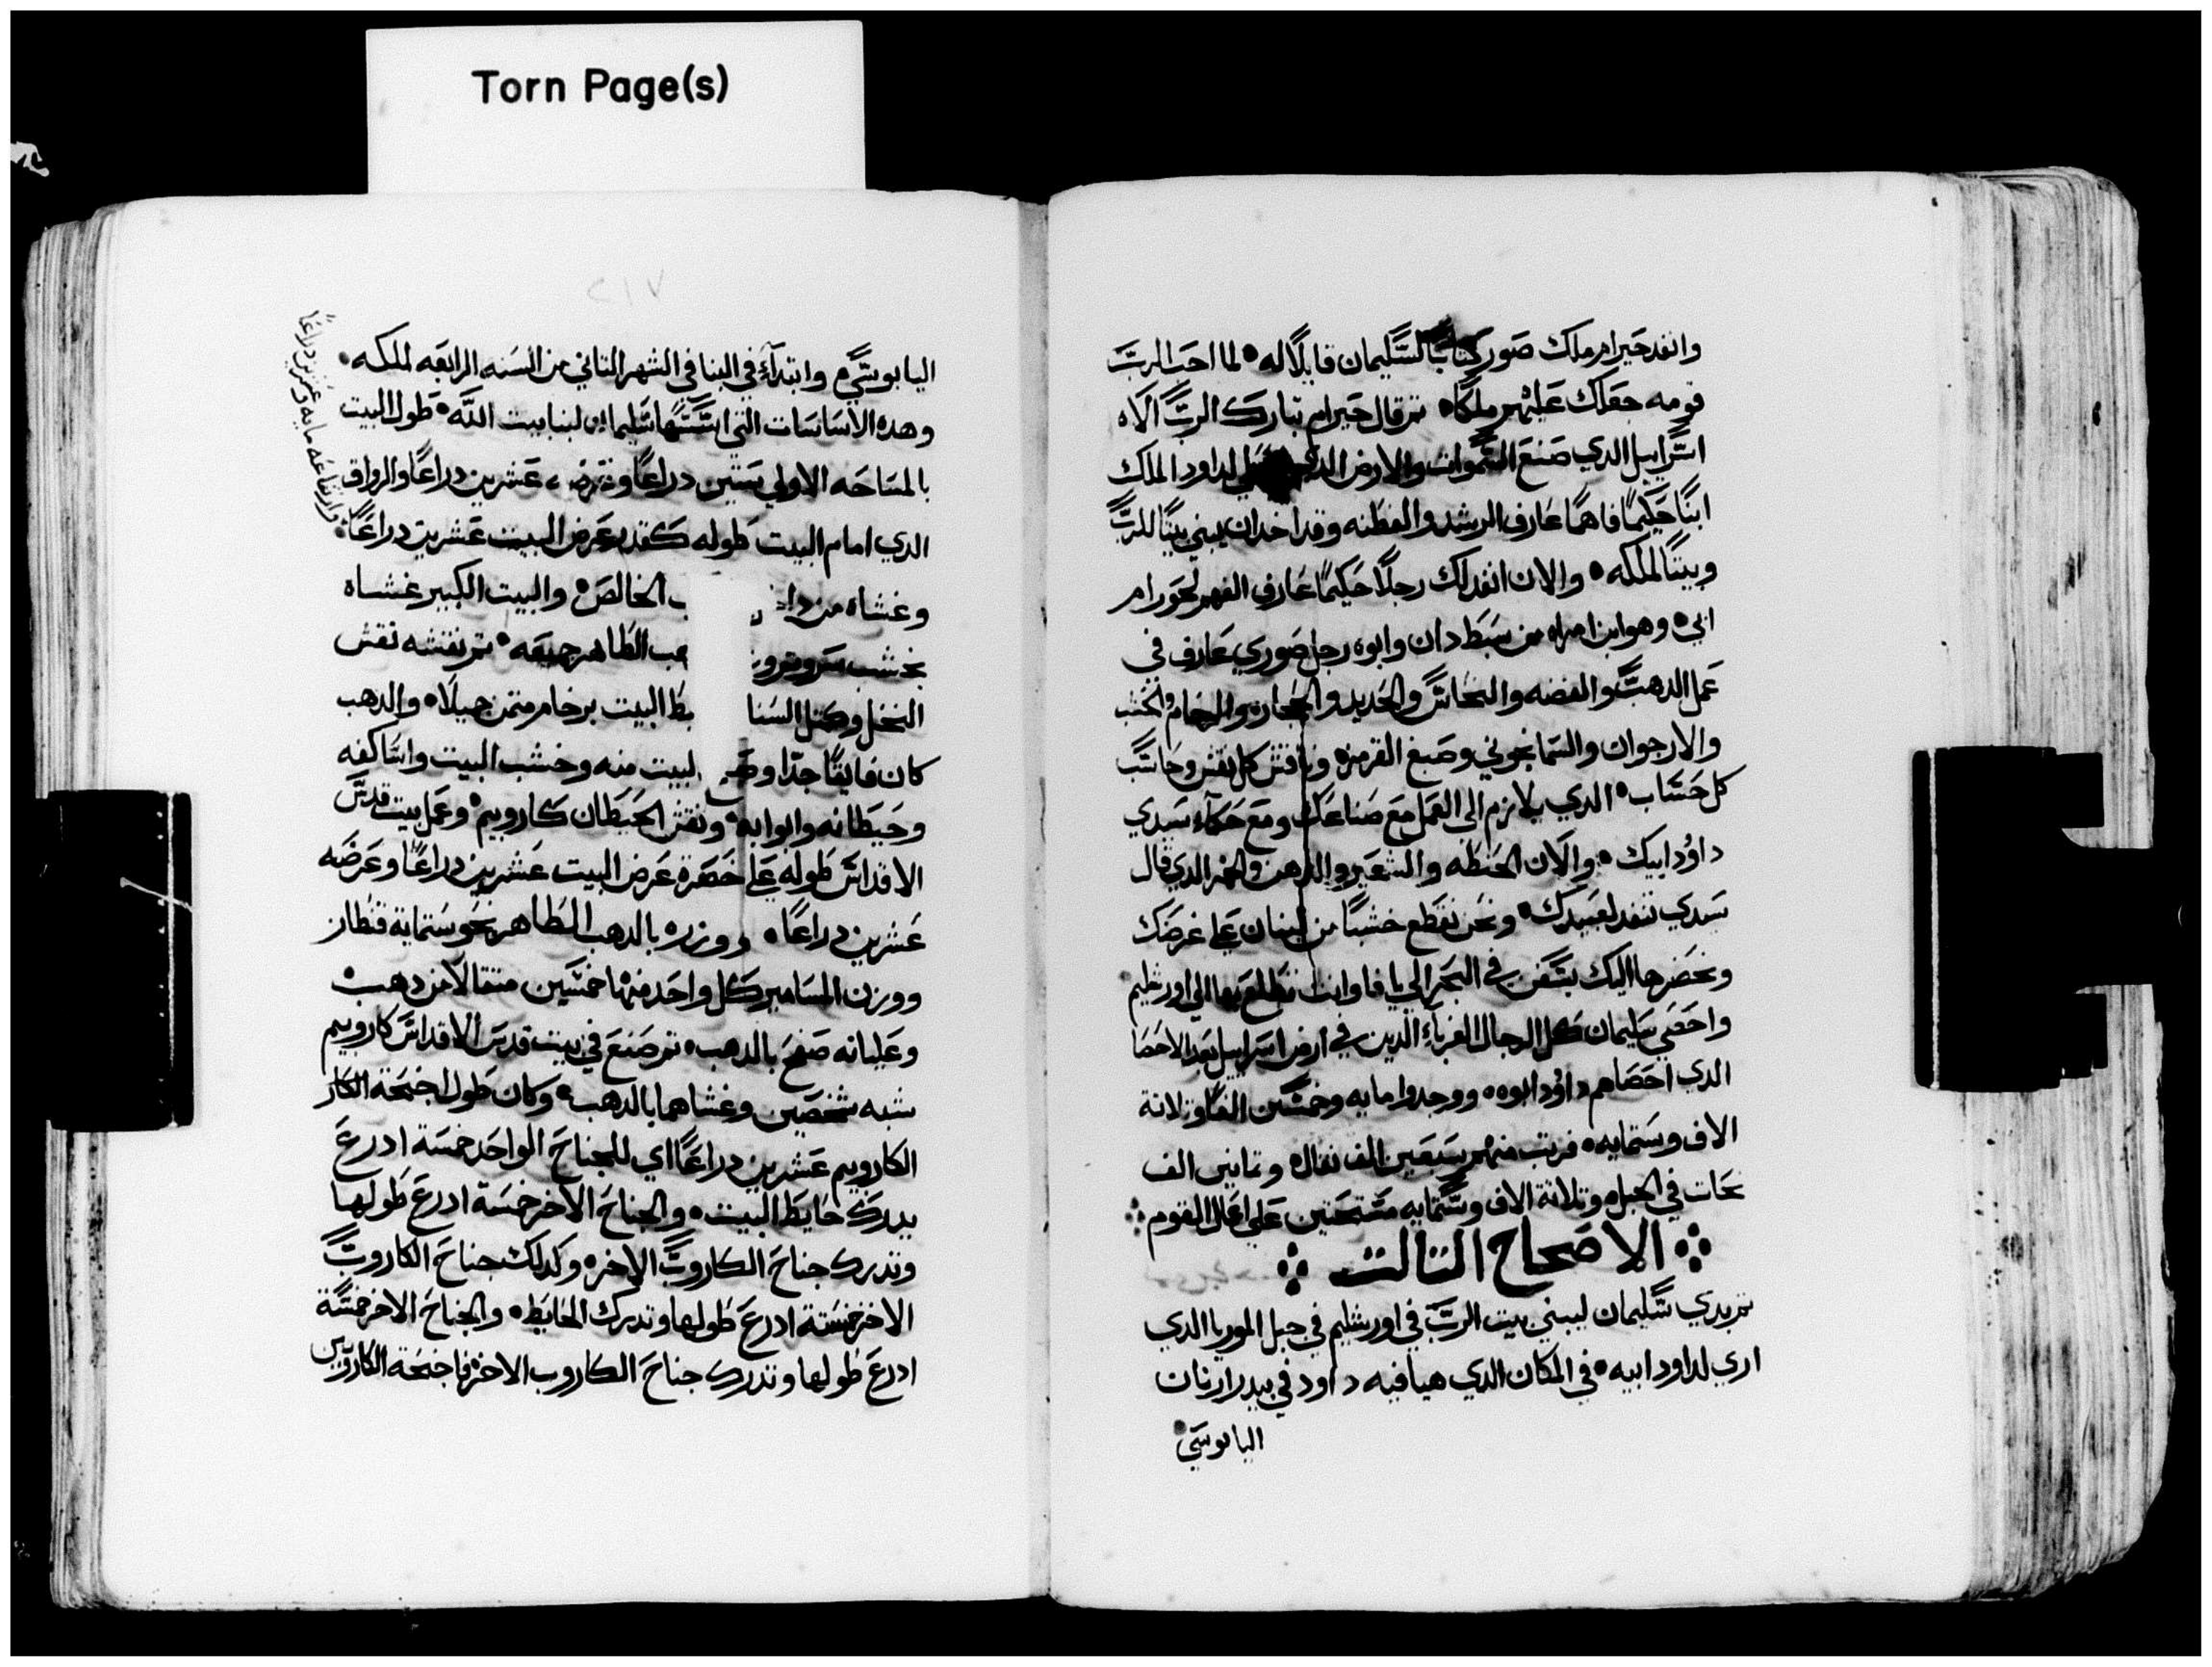 Torn Page(s)
وانفد حيرام ملك صور كتابًا لسليمان قايلًا له • لما احب الرب
قومه جعلك عليهم ملكًا • تم قال حيرام تبارك الرب الاه
اسراييل الدي صنع السموات والارض الدي لداود الملك
ابنًا حكيمًا فاهمًا عارف الرشد والفطنه وقد اخد ان يبني بيتًا للرب
وبيتًا لملكه • والان انفدلك رجلًا حكيمًا عارف الفهم لحورام
ابي • وهو ابن امراه من سبط دان وابوه رجل صوري عارف في
عمل الدهب والفضه والنحاس والحديد والحجاره والرخام والخشب
والارجوان والسمانجوني وصبغ القرمز • وناقش كل نقش وحاسب
كل حساب • الدي يلازم الى العمل مع صناعك ومع حكماء سيدي
داود ابيك • والان الحنطه والشعير والدهن والخمر الدي قال
سيدي تنفد لعبيدك • ونحن نقطع خشبًا من لبنان على غرضك
ونحضرها اليك بسفن في البحر الي يافا وانت تطلع بها الي اورشليم
واحصي سليمان كل الرجال الغرباء الدين في ارض اسراييل بعد الاحصا
الدي احصاهم داود ابوه • ووجدوا مايه وخمسين الفًا وتلاتة
الاف وستمايه • فرتب منهم سبعين الف نقال • وتمانين الف
نحات في الجبل • وتلاتة الاف وستمايه مستحتين على اعمال القوم
الاصحاح التالت
تم بدي سليمان ليبني بيت الرب في اورشليم في جبل الموريا الدي
اري لداود ابيه • في المكان الدي هيا فيه داود في بيدر ارنان
اليابوسي
٢١٧
اليابوسي • وابتداء في البنا في الشهر التاني من السنه الرابعه لملكه •
وهده الاساسات التي اسسها سليمان لبنا بيت الله • طول البيت
بالمساحه الاولي ستين دراعًا وعرضه عشرين دراعًا والرواق
الدي امام البيت طوله كقدر عرض البيت عشرين دراعًا •
وارتفاعه مايه وعشرين دراعًا
وغشاه من داخل ب الخالص • والبيت الكبير غشاه
بخشب سرو هب الطاهر جميعه • تم نقشه نقش
النخل وكتل السنا ط البيت برخام متمن جميلًا • والدهب
كان فايقًا جدًا لبيت منه وخشب البيت واساكفه
وحيطانه وابوابه • ونقش الحيطان كاروبيم • وعمل بيت قدس
الاقداس طوله على حضرة عرض البيت عشرين دراعًا وعرضه
عشرين دراعًا • ووزنه بالدهب الطاهر نحو ستماية قنطار
ووزن المسامير كل واحد منها خمسين متقالًا من دهب •
وعليانه صفح بالدهب • تم صنع في بيت قدس الاقداس كاروبيم
شبه شخصين وغشاهما بالدهب • وكان طول اجنحة الكار
الكاروبيم عشرين دراعًا اي للجناح الواحد خمسة ادرع
يدرك حايط البيت • والجناح الاخر خمسة ادرع طولها
وتدرك جناح الكاروب الاخر • وكدلك جناح الكاروب
الاخر خمسة ادرع طولها وتدرك الحايط • والجناح الاخر خمسة
ادرع طولها وتدرك جناح الكاروب الاخر • فاجنحة الكاروبين